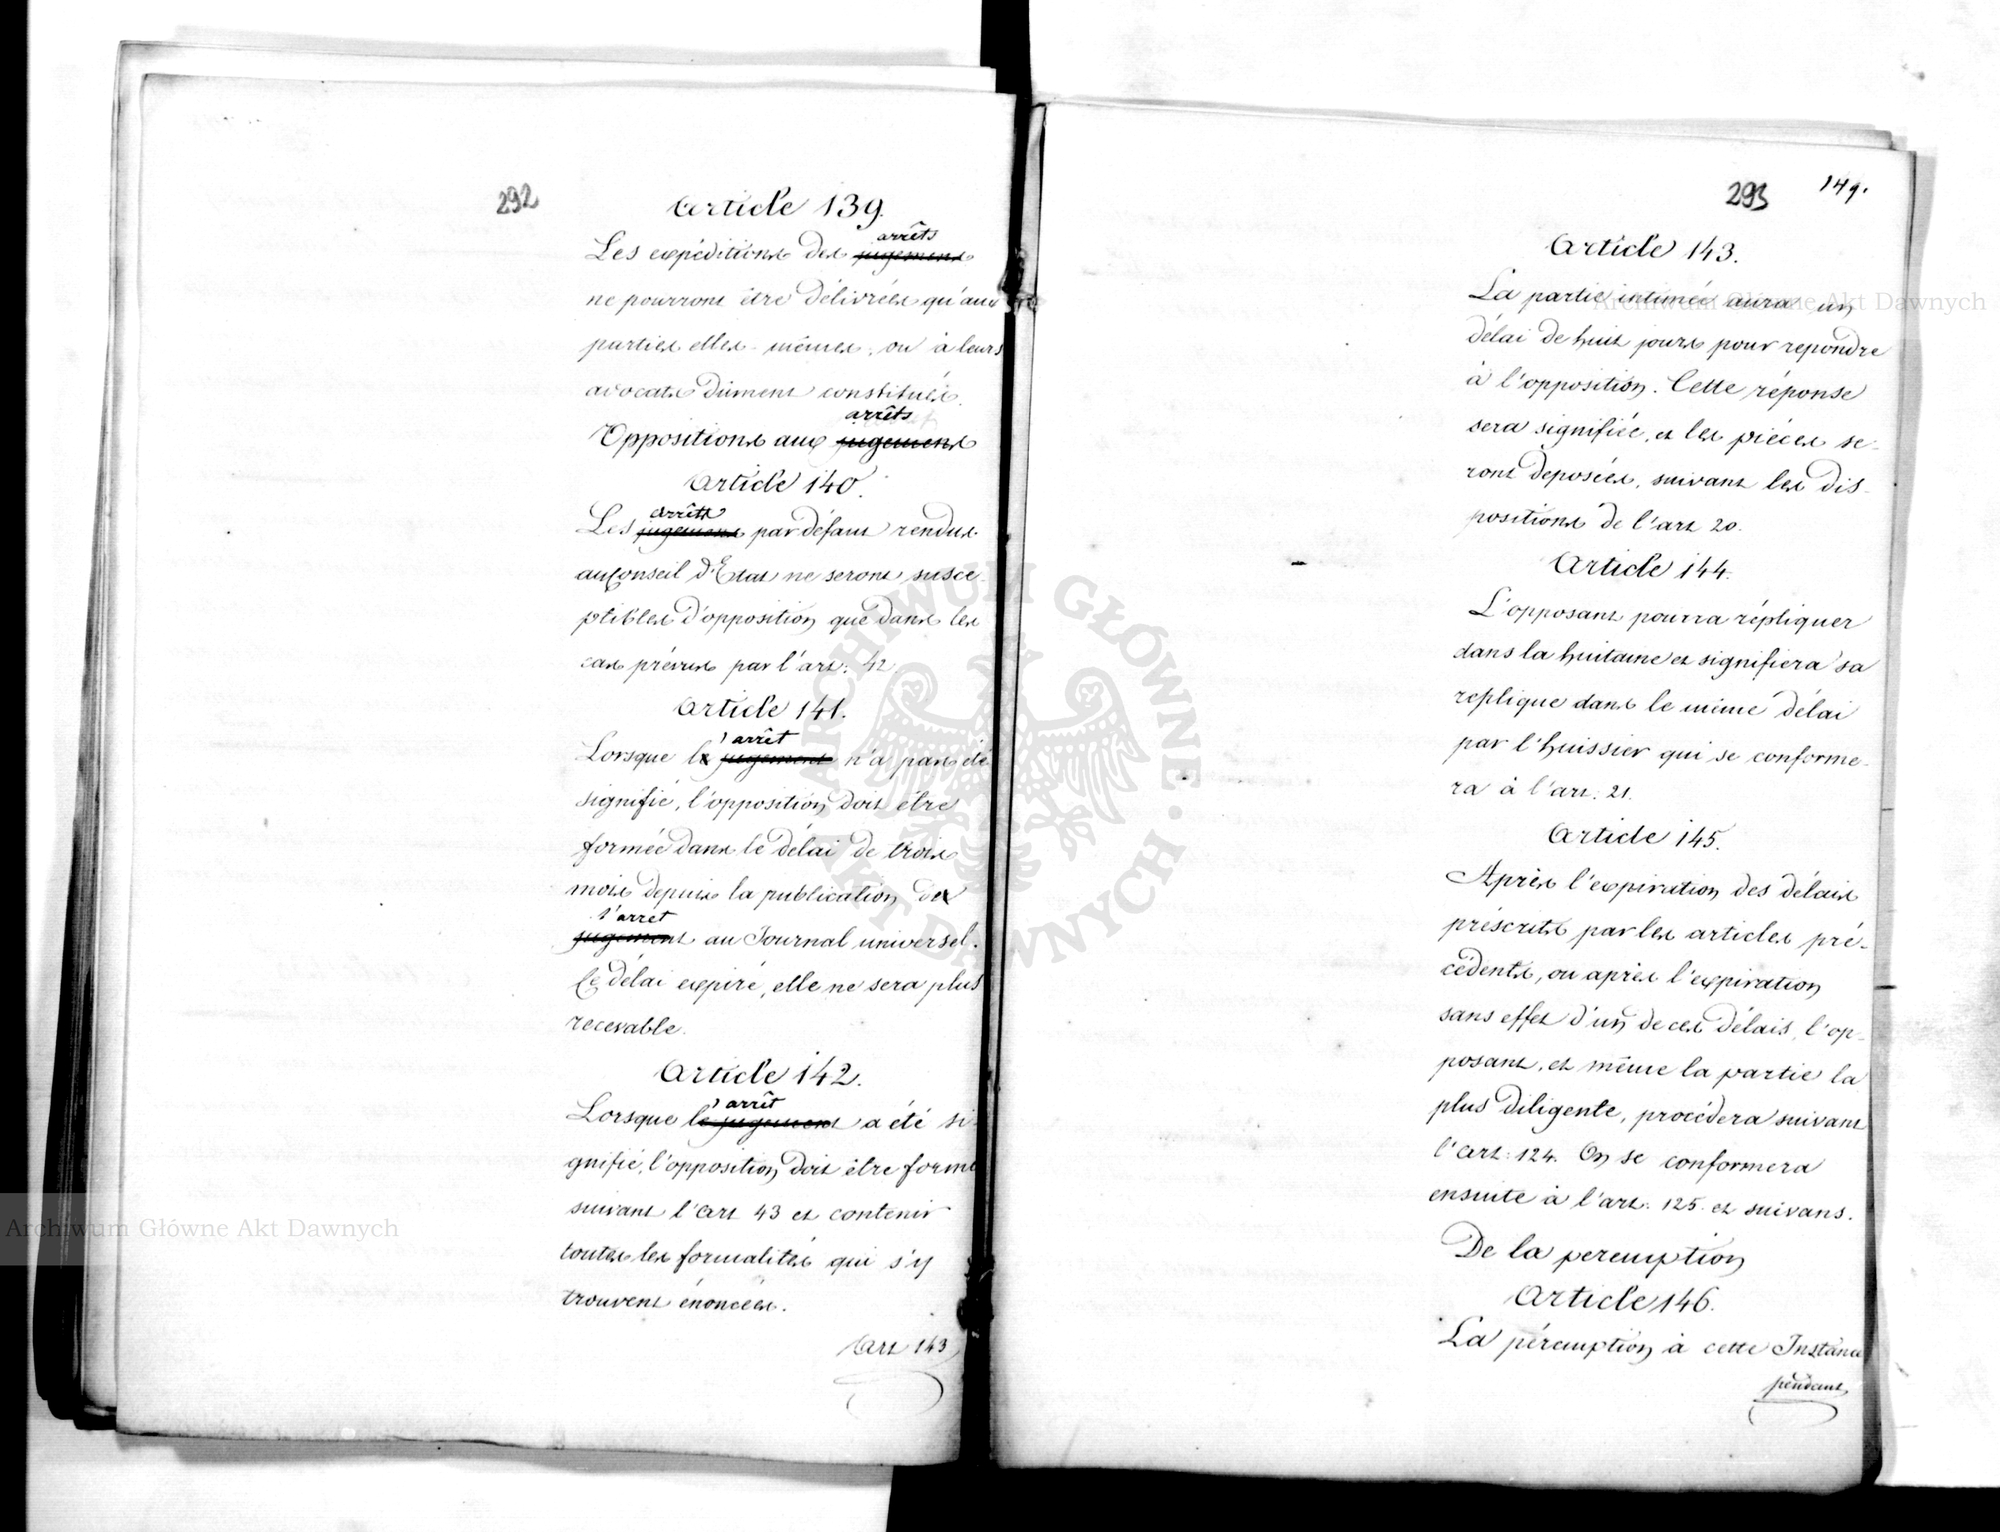 292
Article 139.
arrêts
Les expéditions des jugemens
ne pourront être délivrées qu'aux
parties elles-mêmes, ou à leurs
avocats dûment constitués.
arrêts
Oppositions aux jugemens
Article 140.
arrêts
Les jugemens par défaut rendus
au Conseil d'Etat ne seront susce-
ptibles d'opposition que dans les
cas prévus par l'art: 42.
Article 141.
l'arrêt
Lorsque le jugement n'a pas été
signifié, l'opposition doit être
formée dans le délai de trois
mois depuis la publication de
l'arret
jugement au Journal universel.
Ce délai expiré, elle ne sera plus
recevable.
Article 142.
' arrêt
Lorsque le jugement a été si-
gnifié, l'opposition doit être formé
suivant l'Art 43 et contenir
toutes les formalités qui s'y
trouvent énoncées.
Art 143
293 149.
Article 143.
La partie intimée aura un
délai de huit jours pour repondre
à l'opposition. Cette réponse
sera signifiée, et les pièces se-
ront deposées, suivant les dis-
positions de l'art 20.
Article 144.
L'opposant pourra répliquer
dans la huitaine et signifiera sa
replique dans le même délai
par l'huissier qui se conforme-
ra à l'art: 21.
Article 145.
Après l'expiration des délais
préscrits par les articles pré-
cédents, ou après l'expiration
sans effet d'un de ces délais, l'op-
posant, et même la partie la
plus diligente, procédera suivant
l'Art: 124. On se conformera
ensuite à l'art: 125. et suivans.
De la peremption
Article 146.
La péremption à cette Instance
pendant
Archiwum Główne Akt Dawnych
Archiwum Główne Akt Dawnych
ARCHIWUM GŁÓWNE · AKT DAWNYCH ·